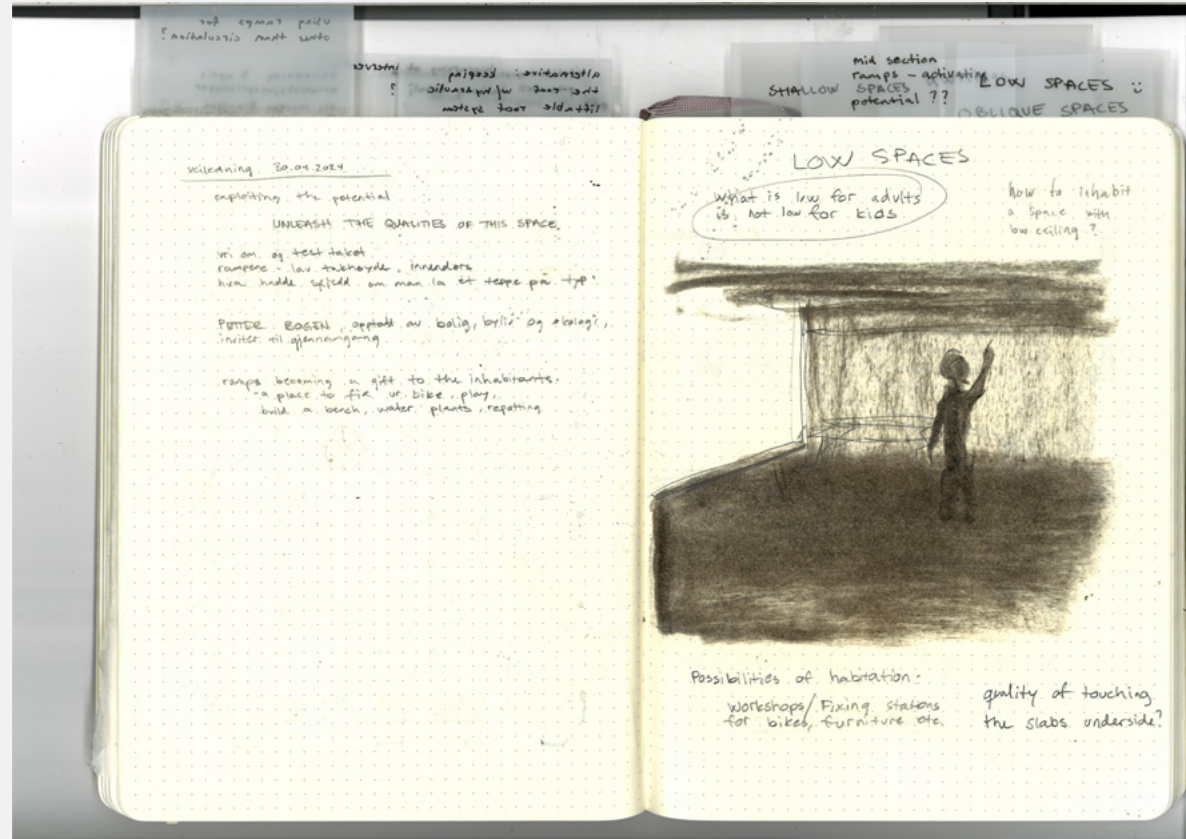 using ramps for
other than circulation?
alternative: keeping
the roof w/hydraulic ?
liftable roof system
SHALLOW SPACES
mid section
ramps – activating
potential ??
LOW SPACES
OBLIQUE SPACES
veiledning 30.04.2024
exploiting the potential
UNLEASH THE QUALITIES OF THIS SPACE.
vri om og test taket
rampene - lav takhøyde, innendørs
hva hadde skjedd om man la et teppe på typ.
PETTER BOGEN, opptatt av bolig, byliv og økologi,
inviter til gjennomgang
ramps becoming a gift to the inhabitants.
-a place to fix ur bike, play,
build a bench, water plants, repotting.
LOW SPACES
What is low for adults
is not low for kids
how to inhabit
a space with
low ceiling ?
Possibilities of habitation:
workshops/Fixing stations
for bikes, furniture etc.
quality of touching
the slabs underside?